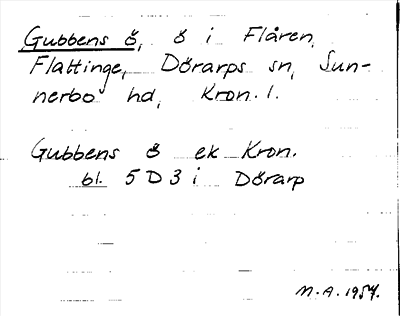 Gubbens ö, ö i Flåren,
Flattinge, Dörarps sn, Sun-
nerbo hd, Kron. l.
Gubbens ö ek Kron.
bl. 5 D 3 i Dörarp
M.A. 1954.